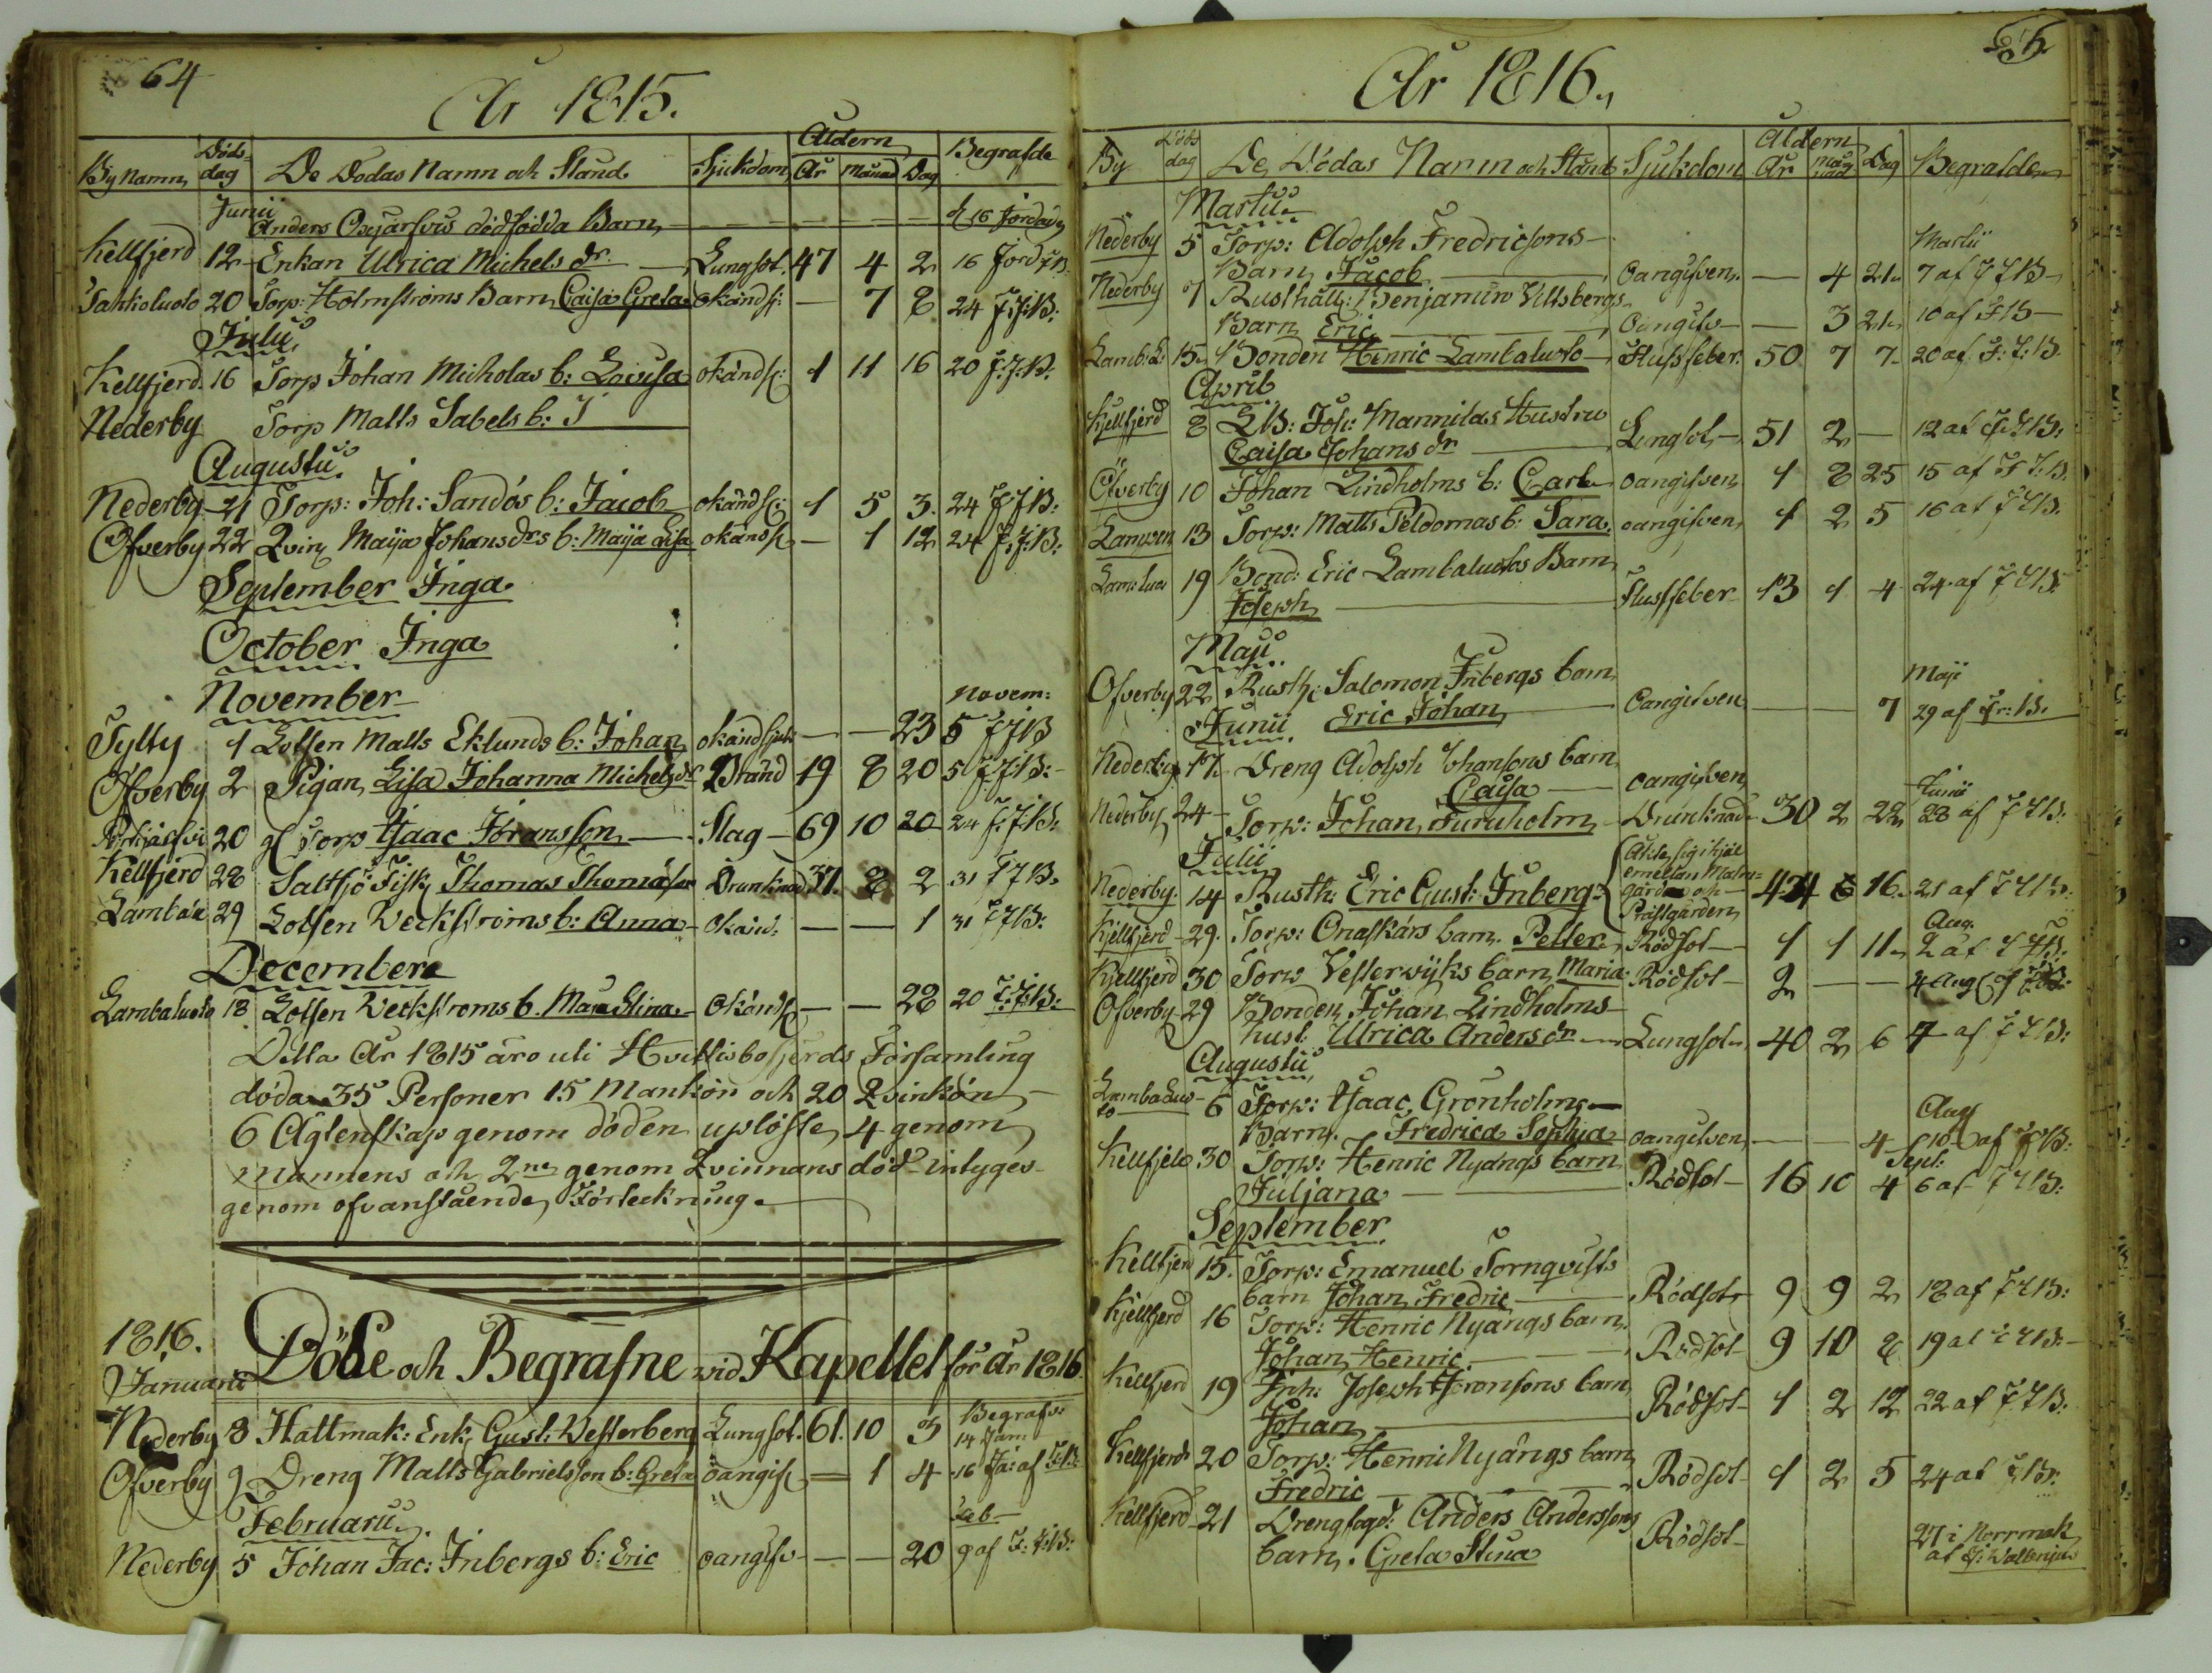 64
År 1815.
By namn, Döds-dag De Dödas Namn och Stånd. Sjukdom, Åldern År Månad Dag Begrafde
Junii
Anders Oxjärfvis dödfödda Barn, — — — — d. 16 Jordad
Kellfjerd 12 Enkan Ulrica Michels dr. — Lungsot. 47 4 2 16 Jord J B.
Sankoluoto 20 Torp: Holmströms Barn, Caisa Greta okänd sj: — 7 8 24 J. J. B:
Julii
Kellfjerd. 16 Torp Johan Micholas b: Lovisa okänd sj: 1 11 16 20 J. J. B.
Nederby Torp Matts Sabels b: J
Augustii
Nederby 21 Torp: Joh: Sandös b: Jacob okänd sj: 1 5 3. 24 J J B:
Öfverby 22 Qvin, Maija Johansdrs b: Maija Lisa okänd sj — 1 12 24 J. J. B:
September Inga.
October Inga
November
Novem:
Tylty 1 Lotsen Matts Eklunds b: Johan okänd sjuk — — 23 5 J J B
Öfverby 2 Pigan, Lisa Johanna Michelsdr Bränd 19 8 20 5 J. J. B:
20 gl Torp Isaac Göransson — Slag — 69 10 20 24 J. J. B:
Kellfjerd 28 Saltsjö Fisk, Thomas Thomasson Drunknad 37. 8 2 31 J J B.
29 Lotsen Weckströms b: Anna — okänd. — — 1 31 J J B:
December
Lambaluoto 18 Lotsen Weckströms b. Maja Stina — Okänd sj — — 28 20 J. J. B:
Detta År 1815 äro uti Hvittisbofjerds Församling
döda 35 Personer 15 Mankön och 20 Qvinkön,
6 Ägtenskap genom döden uplöste, 4 genom
mannens och 2ne genom Qvinnans död — intyges
genom ofvanstående, Förteckning.
1816.
Januarii
Döde och Begrafne wid Kapellet för år 1816.
Nederby 8 Hattmak: Enk, Gust: Westerberg Lungsot. 61. 10 3 Begrafv: 14 Jan:
Öfverby 9 Dreng Matts Gabrielsson b: Greta oangif — 1 4 16 Ja: af J. B:
Februarii.
Feb —
Nederby 5 Johan Jac: Inbergs b: Eric oangifv — — — 20 9 af J: J: B:
65
År 1816.
By Döds dag De Dödas Namn och Stånd Sjukdom Åldern År Månad Dag Begrafde
Martii
Martii
Nederby 5 Torp: Adolph Fredricsons —
Barn, Jacob — Oangifven. — 4 21 7 af J J B —
Nederby 7 Rusthåll: Benjamin Viltsbergs
Barn Eric — Oangifv — — 3 21 10 af J B —
Lamb: L: 15 Bonden Henric Lambaluoto — Flussfeber: 50 7 7 20 af J: J: B.
April
Kjellfjerd 8 L B: Joh: Mannilas Hustru
Caisa Johans dr — Lungsot — 51 2 — 12 af J. J. B:
Öfverby 10 Johan Lindholms b: Carl oangifven, 1 8 25 15 af J J: B.
13 Torp: Matts Peldomas b: Sara. oangifven, 1 2 5 16 af J J B.
Lam: luo 19 Bond: Eric Lambaluotos Barn
Joseph — Flussfeber 13 1 4 24 af J J B:
Maji
Maji
Öfverby 22 Rusth: Salomon Inbergs barn,
Eric Johan — Oangifven — — 7 29 af Fr: B.
Junii
Nederby 17 Dreng Adolph Johansons barn
Caisa — oangifven,
Junii
Nederby 24 — Torp: Johan Furuholm — Drunknade 30 2 22 28 af J J B:
Julii
Nederby 14 Rusth: Eric Gust: Inberg: Åkte sig ihjäl emellan Malmgården och Prästgården, 44 6 16. 21 af J J B.
Kjellfjerd 29. Torp: Onaskärs barn. Petter — Rödsot — 1 1 11 Aug. 2 af J J B:
Kjellfjerd 30 Torp Vesterwyks barn, Maria. Rödsot — 2 — — 4 Aug af J B:
Öfverby 29 Bonden, Johan Lindholms —
hust. Ulrica Anders dr — Lungsot 40 2 6 4 af J J B:
Augustii
Lambaluoto 6 Torp: Isaac, Grönholms —
Barn, Fredrica Sophia oangifven, — — 4 Aug 10 af J B:
Kellfjeld 30 Torp: Henric Nyängs barn
Juljana — Rödsot — 16 10 4 Sept: 6 af J J B:
September
Kellfjerd 15. Torp: Emanuel Tornqvists
barn Johan, Fredric — Rödsot 9 9 2 18 af J J B:
Kjellfjerd 16 Torp: Henric Nyängs barn.
Johan, Henric. — Rödsot — 9 10 8 19 af J J B:
Kellfjerd 19 Inh: Joseph Isronsons barn,
Johan, — Rödsot — 1 2 12 22 af J J B.
Kellfjerd 20 Torp: Henric Nyängs barn,
Fredric — Rödsot — 1 2 5 24 af J. B:
Kellfjerd 21 Drengfogd: Anders Anderssons
barn. Greta Stina Rödsot — 27 i Norrmark af J. Wallenius